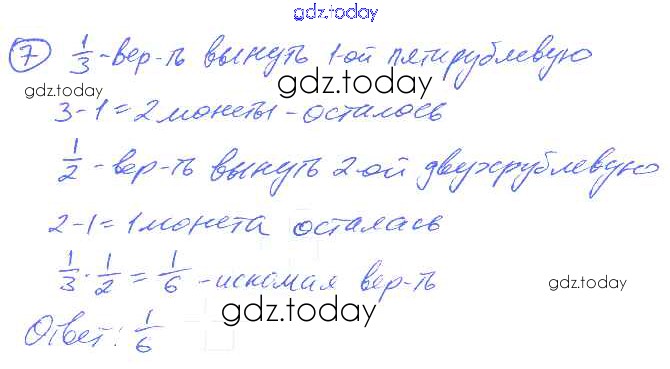 gdz.today
7 1/3 - вер-ть вынуть 1-ой пятирублевую
gdz.today gdz.today
3-1=2 монеты - осталось
1/2 - вер-ть вынуть 2-ой двухрублевую
gdz.today
2-1=1 монета осталась
1/3 · 1/2 = 1/6 - искомая вер-ть
gdz.today
gdz.today
Ответ: 1/6